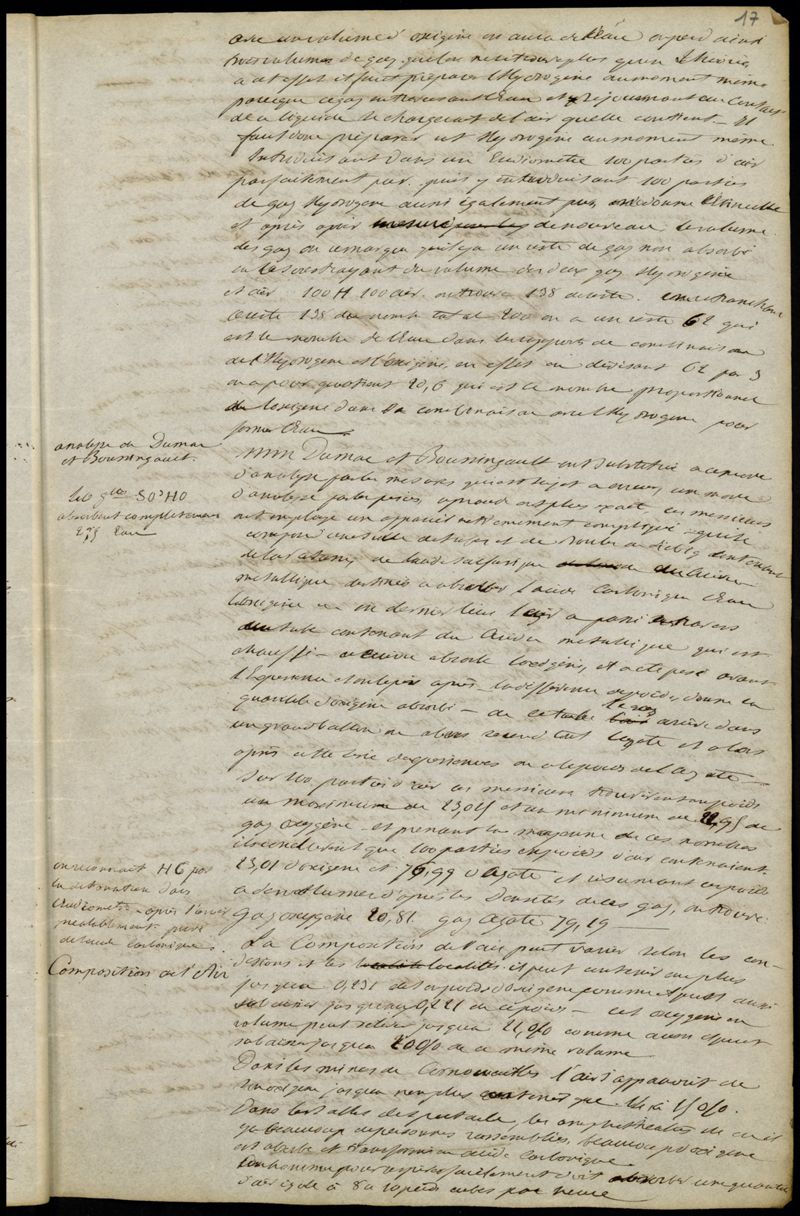 17
avec un volume d'oxigène on aura de l'Eau on perd ainsi
trois volumes de gaz
a cet effet il faut préparer l'Hydrogène au moment même
parceque ce gaz en traversant l'Eau et séjournant au Contact
de ce liquide se chargerait de l'air quelle contient — Il
faut donc préparer cet Hydrogène au moment même
Introduisant dans un Eudiomètre 100 parties d'air
parfaitement pur. puis y introduisant 100 parties
de gaz Hydrogène aussi également pur, on donne l'Etincelle
et après avoir mesuré de nouveau le volume
des gaz on remarque qu'il y a un reste de gaz non absorbé
en le soustrayant du volume des deux gaz Hydrogène
et air 100 H 100 air. on trouve 138 de reste. en retranchant
ce reste 138 du nombre total 200 on a un reste 62 qui
est le nombre de l'Eau dans les rapports de combinaison
de l'Hydrogène et l'oxigène, en effet en divisant 62 par 3
on a pour quotient 20,6 qui est le nombre proportionnel
de l'oxigène dans sa combinaison avec l'Hydrogène pour
former l'Eau.
analyse de Dumas
et Boussingault.
MM Dumas et Boussingault ont substitué a ce mode
d'analyse par les mesures qui est sujet a erreur, un mode
d'analyse par les pesées, ces messieurs
ont employé un appareil extrêmement compliqué
composé de tubes et de Boules a Liebig contenant
de la Potasse, de l'acide sulfurique
métallique destinés a absorber l'acide Carbonique l'Eau
l'oxigène en dernier lieu l'air a passé a travers
un tube contenant du Cuivre métallique qui est
chauffé — ce cuivre absorbe l'oxigène, et a été pesé avant
l'Expérience et on le pèse après — la différence du poids, donne la
quantité d'oxigène absorbé — de ce tube le gaz arrive dans
un grand ballon
après cette série d'expériences on a le poids de l'azote —
40 gr SO³HO
absorbent complètement
Eau
Sur 100 parties d'air ces messieurs
un maximum de 23,09 et un minimum de 22,95 de
gaz oxygène — et prenant la moyenne de ces nombres
que 100 parties en poids d'air contenaient
23,01 d'oxigène et 76,99 d'Azote
volumes d'après les Densités de ces gaz, on trouve
gaz oxygène 20,81 gaz Azote 79,19 —
on reconnait HC par
la détonation dans
l'Eudiomètre après l'avoir
préalablement privé
de l'acide Carbonique.
Composition de l'Air
La Composition de l'air peut varier selon les con-
ditions et les localités. il peut contenir au plus
jusqu'a 0,231 de son poids d'oxigène comme il peut aussi
s'abaisser jusqu'au 0,221 de ce poids — cet oxygène en
volume peut s'élever jusqu'a 21,0/0 comme aussi il peut
s'abaisser jusqu'a 20 0/0 de ce même volume
Dans les mines de Cornouailles l'air s'appauvrit de
son oxigène jusqu'a n'en plus contenir que 14 a 15 0/0.
Dans les salles de spectacle, les amphithéatres ou il
y a beaucoup de personnes rassemblées, beaucoup d'oxigène
est absorbé et transformé en acide Carbonique.
un homme pour respirer facilement doit absorber une quantité
d'air égale à 8 a 10 pieds cubes par heure